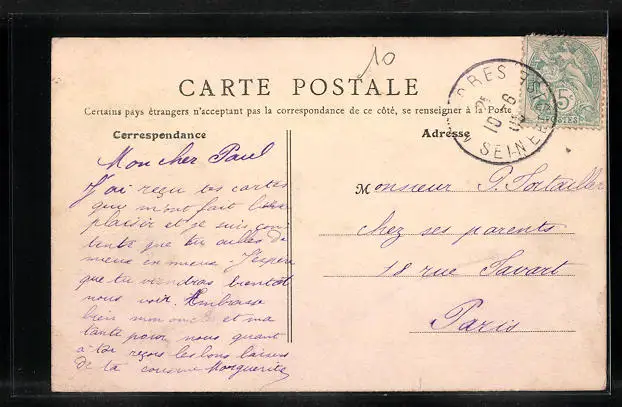 10
CARTE POSTALE
Certains pays étrangers n'acceptant pas la correspondance de ce côté, se renseigner à la Poste
Correspondance
Mon cher Paul
J'ai reçu tes cartes
qui m'ont fait bien
plaisir et je suis con
tente que tu ailles de
mieux en mieux. J'espère
que tu viendras bientôt
nous voir. Embrasse
bien mon oncle et ma
tante pour nous quant
à toi reçois les bons baisers
de ta cousine Marguerite
Adresse
Monsieur P. Fortailler
chez ses parents
18 rue Savart
Paris
SEINE
5c
POSTES